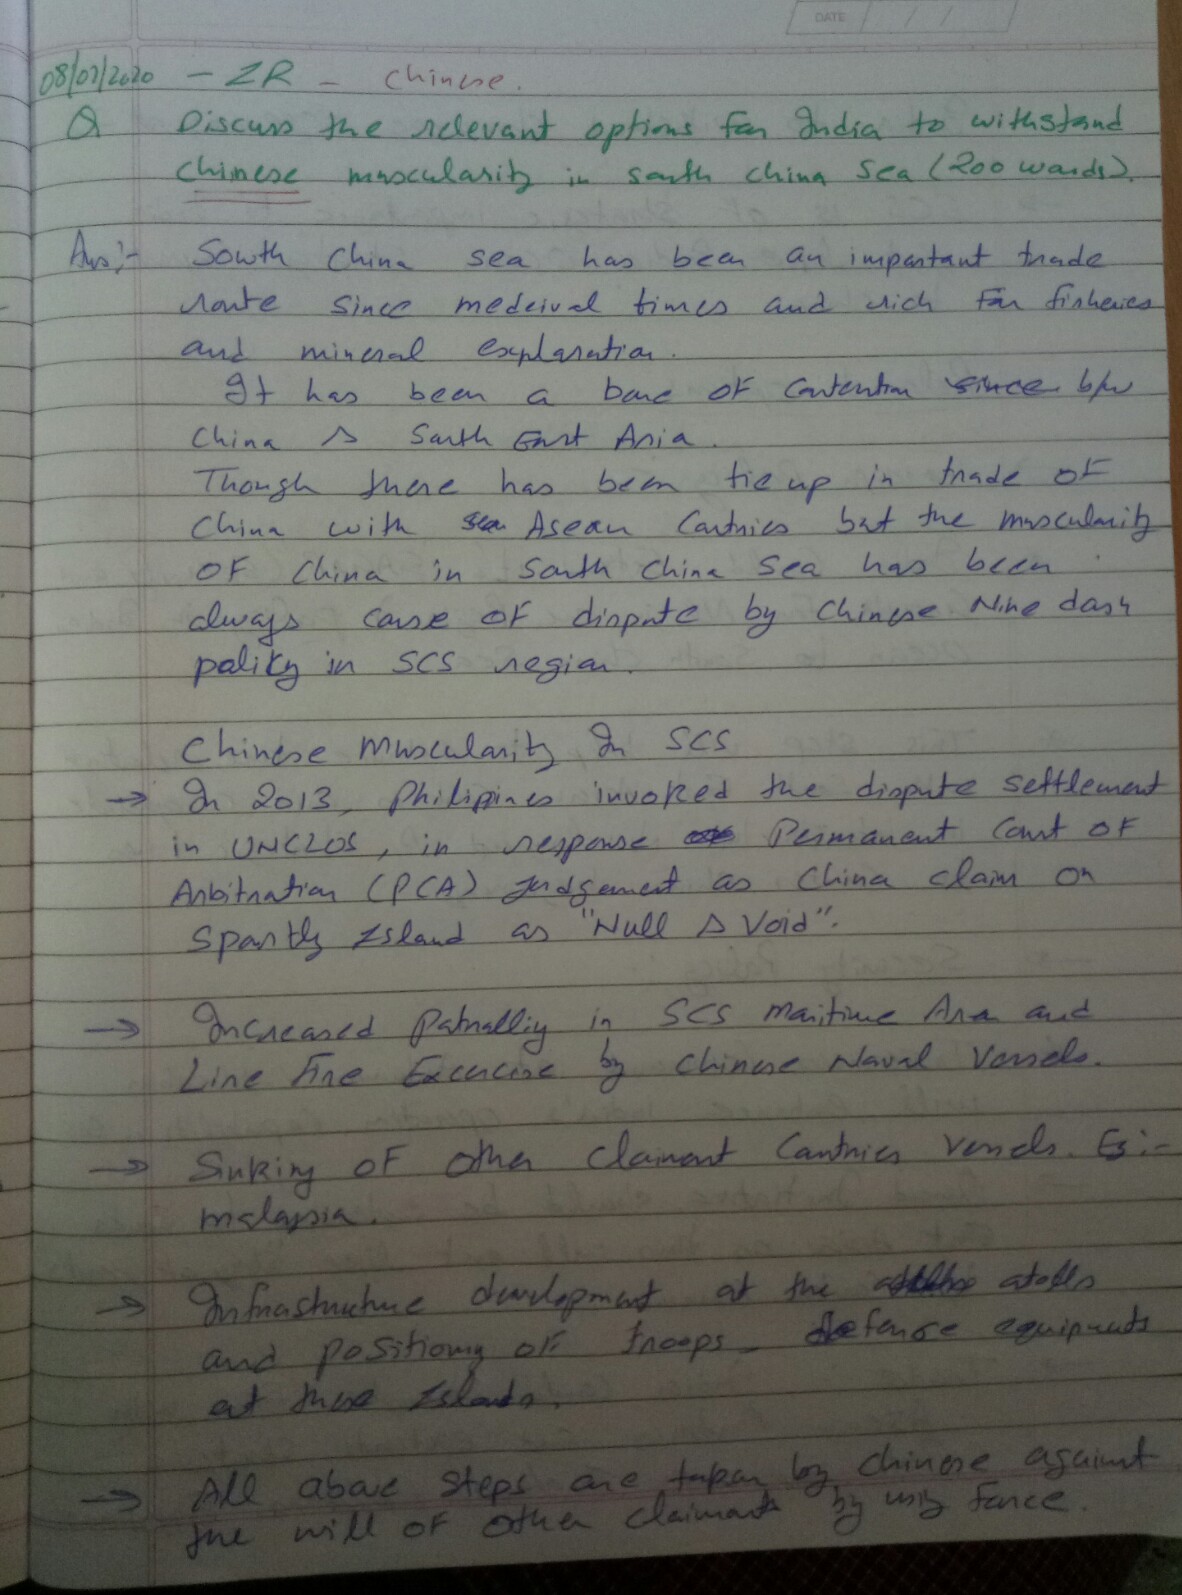 DATE
08/07/2020 - IR - Chinese.
Q Discuss the relevant options for India to withstand
Chinese muscularity in south china sea (200 words).
Ans:- South China sea has been an important trade
route since medeival times and rich for fisheries
and mineral exploration.
It has been a bone of contention since b/w
China & South East Asia.
Though there has been tie up in trade of
China with Asean Contries but the muscularity
of China in South China Sea has been
always cause of dispute by Chinese Nine dash
policy in SCS region.
Chinese Muscularity In SCS
→ In 2013, Philippines invoked the dispute settlement
in UNCLOS, in response Permanent Court of
Arbitration (PCA) judgement as China claim on
Spartly Island as "Null & Void".
→ Increased Patrolliy in SCS Maritime Area and
Live Fire Excercise by Chinese Naval Vessels.
→ Sinking of other claimant Contries vessels. Eg:-
malaysia.
→ Infrastructure development at the atolls
and positiong of troops defense equipments
at these Islands.
→ All above steps are taken by chinese against
the will of other claimant by using force.